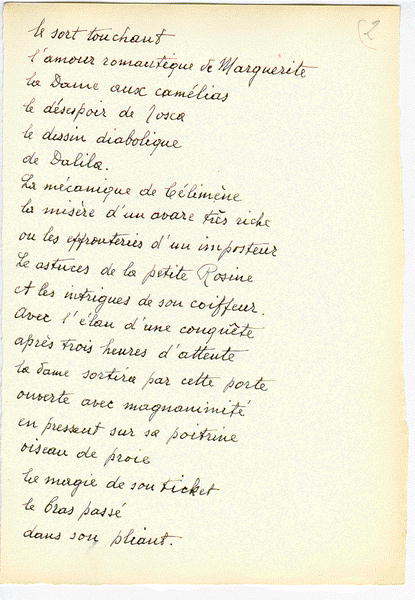 2
le sort touchant
l'amour romantique de Marguerite
la Dame aux camélias
le désespoir de Tosca
le dessin diabolique
de Dalila.
La mécanique de Célimène
la misère d'un avare très riche
ou les effronteries d'un imposteur
Le astuces de la petite Rosine
et les intrigues de son coiffeur.
Avec l'élan d'une conquête
après trois heures d'attente
la dame sortira par cette porte
ouverte avec magnanimité
en pressant sur sa poitrine
oiseau de proie
la magie de son ticket
le bras passé
dans son pliant.